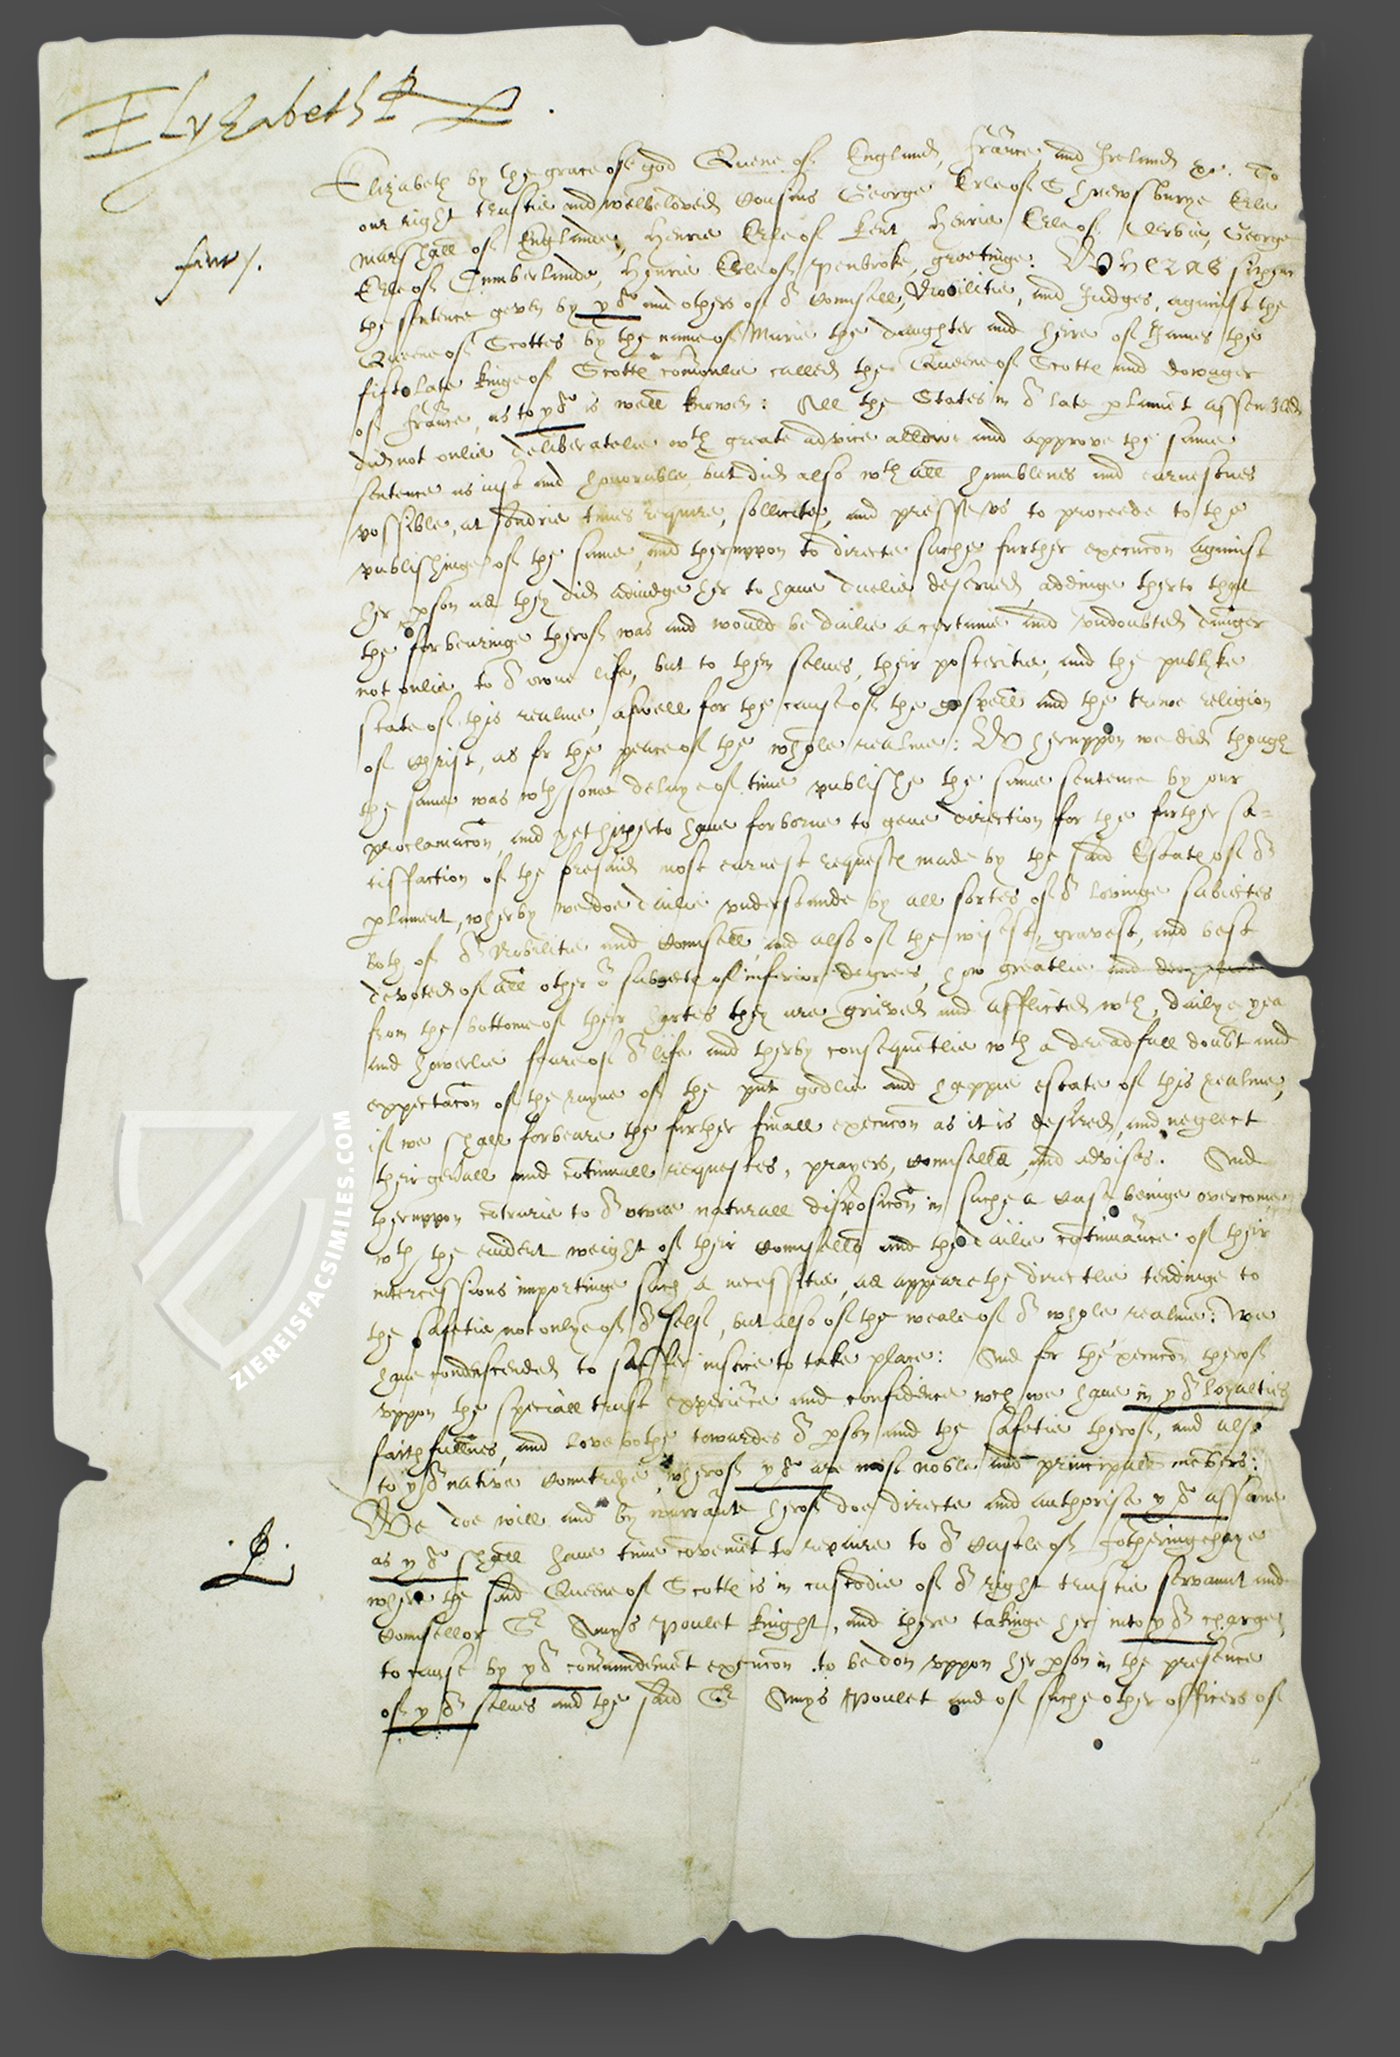 Elyzabeth R
Elizabeth by the grace of god Quene of England, Fraūce, and Ireland &c. To
our right trustie and welbeloved Cousins George Erle of Shrewsburye Erle
marshall of Englande, Henrie Erle of Kent Henrie Erle of Derbie, George
Erle of Cumberlande, Henrie Erle of Penbroke, greetinge: Wheras sithens
the sentence geven by yoʳ and others of oʳ Counsell, Nobilitie, and Judges, against the
Queene of Scottes by the name of Marie the daughter and heire of James the
fift late kinge of Scottℓ comōnlie called the Queene of Scottℓ and dowager
of fraūce, as to yoʳ is well knowen: All the States in oʳ late plament assembled
did not onlie deliberatelie wᵗʰ greate advice allowe and approve the same
sentence as iust and honorable, but did also wᵗʰ all humblenes and earnestnes
possible, at sondrie times require, sollicite, and presse vs to proceede to the
publishinge of the same, and theruppon to directe suche further execucōn against
her pson as they did adiudge her to haue duelie deserued, addinge therto that
the forbearinge therof was and would be dailie a certaine and vndoubted daunger
not onlie to oʳ owne life, but to them selues, their posteritie, and the publyke
state of this realme, aswell for the cause of the gospell and the trewe religion
of Christ, as for the peace of the whole realme: Wheruppon we did thoughe
the same was wᵗʰ some delaye of time publishe the same sentence by our
proclamacōn, and yet hitherto haue forborne to geue direction for the further sa=
tisfaction of the foresaid most earnest requestℓ made by the said Estatℓ of oʳ
plament, wherby we doe dailie vnderstande by all sortes of oʳ lovinge subiectes
both of oʳ Nobilitie and Counsell, and also of the wisest, gravest, and best
devoted of all other oʳ subiectℓ of inferior degrees, how greatlie and deeplie
from the bottome of their hartes they are grieved and afflicted wᵗʰ, dailye yea
and howerlie feare of oʳ life and therby consequētlie wᵗʰ a dreadfull doubt and
expectacōn of the ruyne of the pn̄t godlie and happie estate of this realme,
if we shall forbeare the further finall execucōn as it is desired, and neglect
their gen̄all and cōtinuall requestes, prayers, counsells, and advises. And
theruppon cōtrarie to oʳ owne naturall disposicōn in suche a case beinge overcomen
wᵗʰ the euident weight of their counsells and the dailie cōtinuāce of their
intercessions importinge such a necessitie, as appeareth directlie tendinge to
the safetie not onlye of oʳ self, but also of the weale of oʳ whole realme: We
haue condescended to suffer iustice to take place: And for the execucōn therof
vppon the speciall trust experiēce and confidence wᶜʰ we haue in yoʳ loyalties
faithfullnes, and love bothe towardes oʳ pson and the safetie therof, and also
to yoʳ native countreye, wherof yoʳ are most noble and principall mēbers:
We doe will and by warrāte herof doe directe and authorise yoʳ assone
as yoʳ shall haue time coveniēt to repaire to oʳ Castle of Fotheringehaye
where the said Queene of Scottℓ is in custodie of oʳ right trustie servaunt and
Counsellor Sʳ Amys Poulet knight, and there takinge her into yoʳ charge
to cause by yoʳ cōmaundemēt execucōn to be don vppon her pson in the presence
of yoʳ selues and the said Sʳ Amys Poulet and of suche other officers of
ZIEREISFACSIMILES.COM